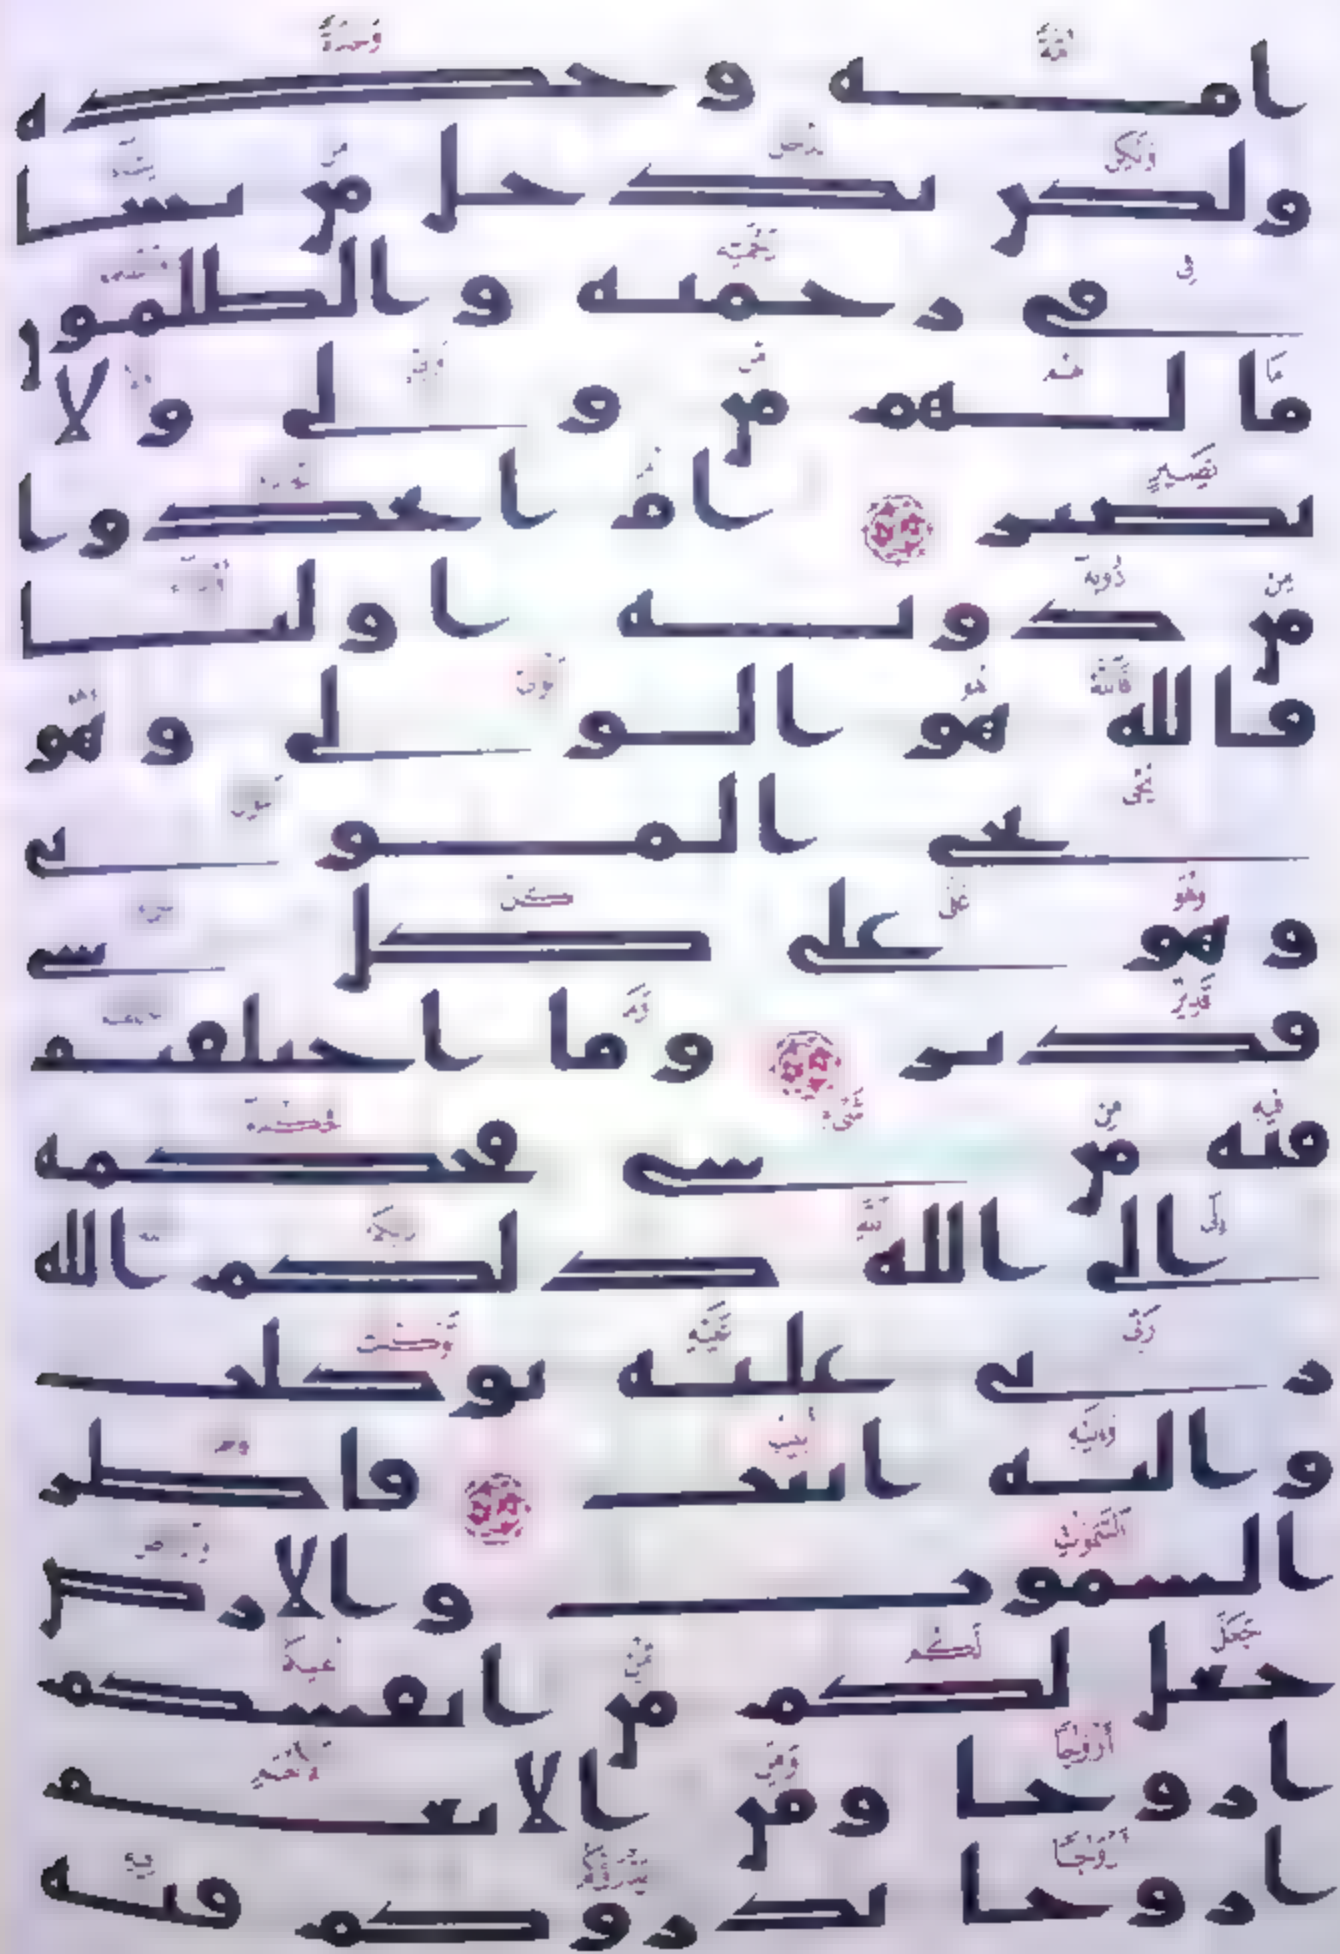 امه وحده
ولكن يدخل من يشا
في رحمته والظلمون
ما لهم من ولي ولا
نصير ام اتخذوا
من دونه اوليا
فالله هو الولي وهو
يحي الموتى
وهو على كل شي
قدير وما اختلفتم
فيه من شي فحكمه
الى الله ذلكم الله
ربي عليه توكلت
واليه انيب فاطر
السموت والارض
جعل لكم من انفسكم
ازوجا ومن الانعم
ازوجا يذروكم فيه